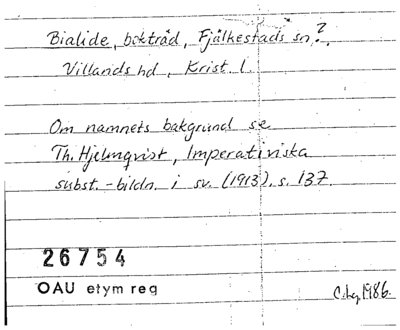 Bialide, bokträd, Fjälkestads sn?,
Villands hd, Krist. l.
Om namnets bakgrund se
Th. Hjelmqvist, Imperativiska
subst.-bildn. i sv. (1913), s. 137.
26754
OAU etym reg
1986.